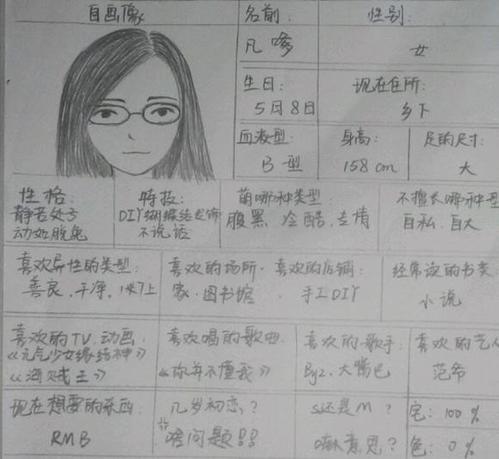 自画像
名前:
性别:
凡嗲
女
生日:
现在住所:
5月8日
乡下
血液型:
身高:
足的尺寸:
B型
158cm
大
性格:
静若处子
动如脱兔
特技:
DIY蝴蝶结发饰
不说话
萌哪种类型:
腹黑 冷酷, 专情
不擅长哪种型
自私. 自大
喜欢异性的类型:
善良, 干净,
喜欢的场所. 喜欢的店铺:
家. 图书馆. 手工DIY
经常读的书类
小说
喜欢的TV. 动画:
《元气少女缘结神》
《海贼王》
喜欢唱的歌曲:
《你并不懂我》
喜欢的歌手:
By2. 大嘴巴
喜欢的艺人
范爷
现在想要的东西:
RMB
几岁初恋?
啥问题!!
S还是M?
嘛意思?
宅: 100%
色: 0%